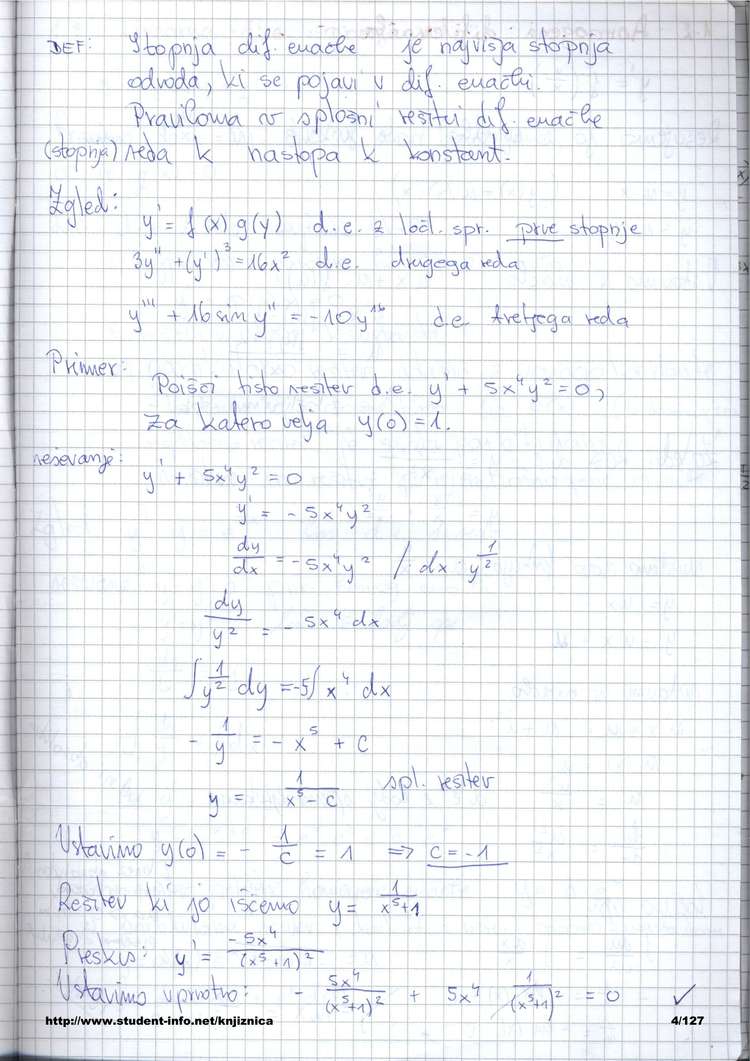 DEF: Stopnja dif. enačbe je najvišja stopnja
odvoda, ki se pojavi v dif. enačbi.
Praviloma v splošni rešitvi dif. enačbe
(stopnja) reda k nastopa k konstant.
Zgled:
y' = f(x) g(y) d.e. z loč. spr. prve stopnje
3y'' + (y')³ = 16x² d.e. drugega reda
y''' + 16 sin y'' = -10y¹⁶ d.e. tretjega reda
Primer:
Poišči tisto rešitev d.e. y' + 5x⁴y² = 0,
za katero velja y(0) = 1.
reševanje:
y' + 5x⁴y² = 0
y' = -5x⁴y²
dy/dx = -5x⁴y² / · dx · 1/y²
dy/y² = -5x⁴ dx
∫ 1/y² dy = -5∫ x⁴ dx
- 1/y = -x⁵ + C
y = 1/(x⁵ - C) spl. rešitev
Vstavimo y(0) = - 1/C = 1 ⇒ C = -1
Rešitev ki jo iščemo y = 1/(x⁵+1)
Preskus: y' = -5x⁴/(x⁵+1)²
Vstavimo v prvotno: - 5x⁴/(x⁵+1)² + 5x⁴ 1/(x⁵+1)² = 0 ✓
http://www.student-info.net/knjiznica 4/127